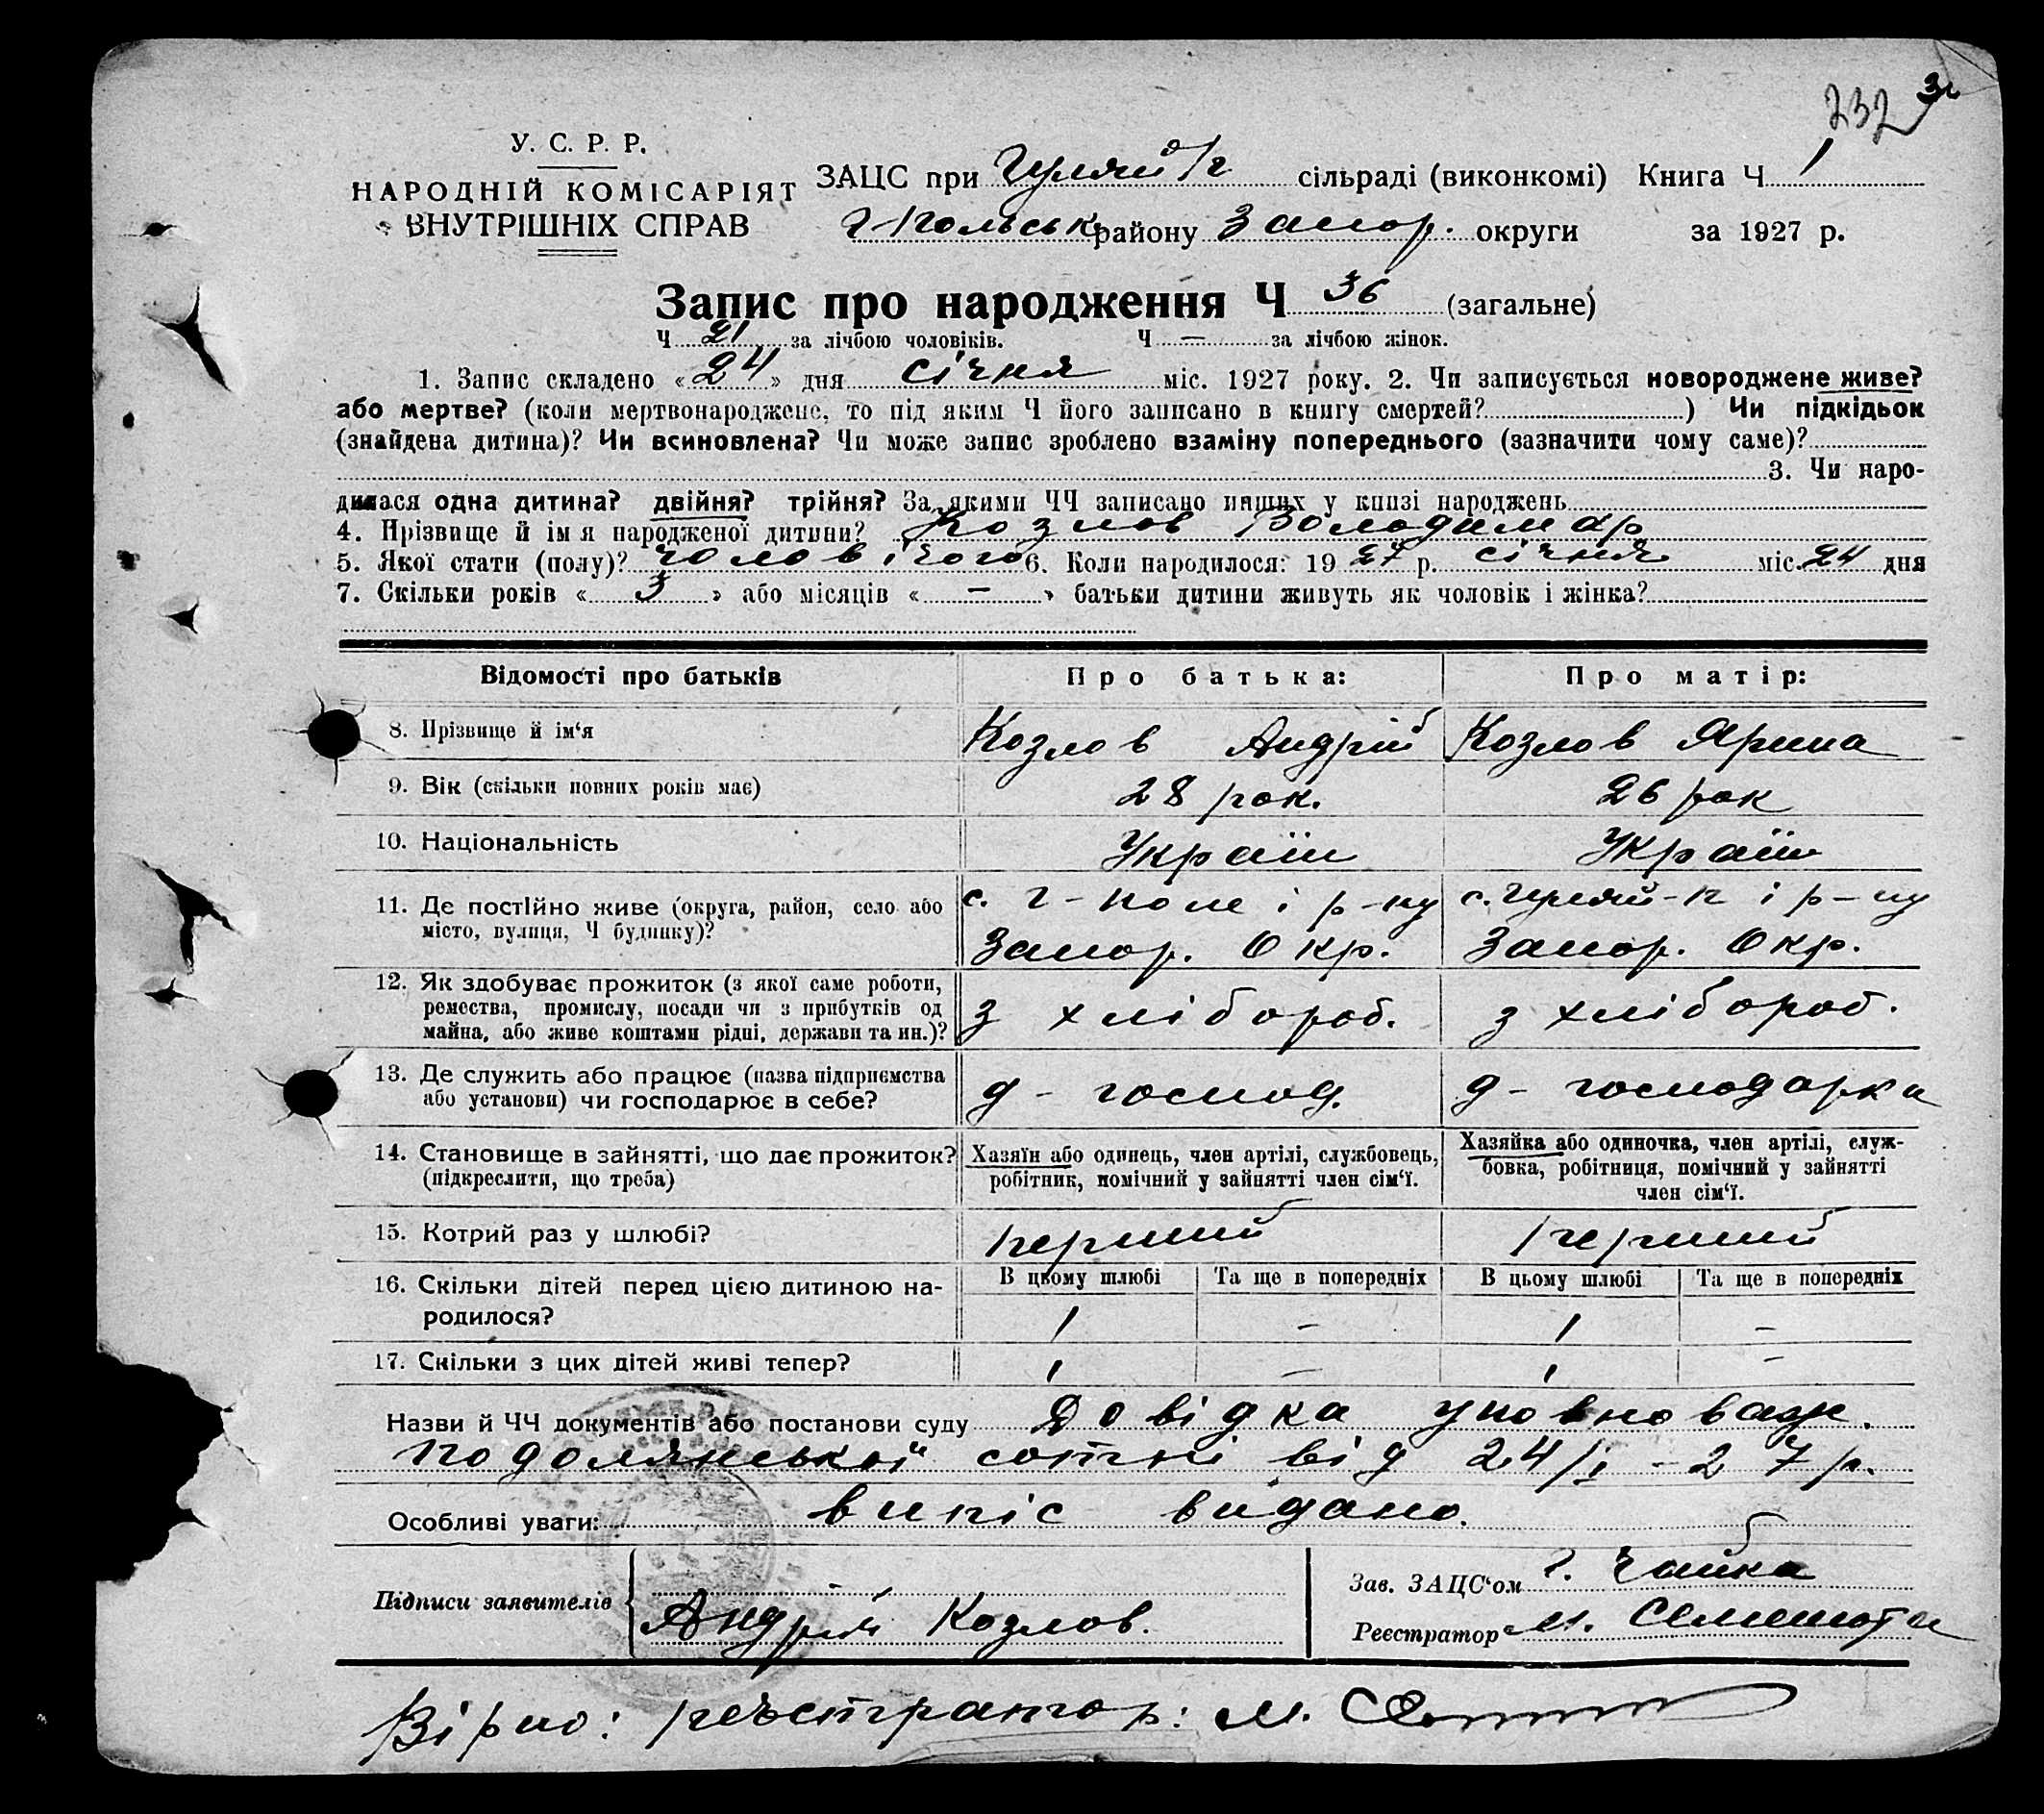 232
У. С. Р. Р.
НАРОДНІЙ КОМІСАРІЯТ
ВНУТРІШНІХ СПРАВ
ЗАЦС при Гуляй п/г сільраді (виконкомі) Книга Ч 1
Г-Польськ району Запор. округи за 1927 р.
Запис про народження Ч 36 (загальне)
Ч 21 за лічбою чоловіків. Ч — за лічбою жінок.
1. Запис складено « 24 » дня січня міс. 1927 року. 2. Чи записується новороджене живе?
або мертве? (коли мертвонароджене, то під яким Ч його записано в книгу смертей? ) Чи підкідьок
(знайдена дитина)? Чи всиновлена? Чи може запис зроблено взаміну попереднього (зазначити чому саме)?
3. Чи наро-
дилася одна дитина? двійня? трійня? За якими ЧЧ записано инших у книзі народжень
4. Прізвище й ім я народженої дитини? Козлов Володимир
5. Якої стати (полу)? чоловічого 6. Коли народилося: 19 27 р. січня міс. 24 дня
7. Скільки років « 3 » або місяців « — » батьки дитини живуть як чоловік і жінка?
Відомості про батьків Про батька: Про матір:
8. Прізвище й ім'я Козлов Андрій Козлов Ярина
9. Вік (скільки повних років має) 28 рок. 26 рок
10. Національність Україн Україн
11. Де постійно живе (округа, район, село або с. Г-Поле і р-ну с. Гуляй-п і р-ну
місто, вулиця, Ч будинку)? Запор. Окр. Запор. Окр.
12. Як здобуває прожиток (з якої саме роботи,
ремества, промислу, посади чи з прибутків од з хлібороб. з хлібороб.
майна, або живе коштами рідні, держави та ин.)?
13. Де служить або працює (назва підприємства д - господ. д - господарка
або установи) чи господарює в себе?
14. Становище в зайнятті, що дає прожиток? Хазяїн або одинець, член артілі, службовець, Хазяйка або одиночка, член артілі, служ-
(підкреслити, що треба) робітник, помічний у зайнятті член сім'ї. бовка, робітниця, помічний у зайнятті
член сім'ї.
15. Котрий раз у шлюбі? перший перший
16. Скільки дітей перед цією дитиною на- В цьому шлюбі Та ще в попередніх В цьому шлюбі Та ще в попередніх
родилося? 1 — 1 —
17. Скільки з цих дітей живі тепер? 1 — 1 —
Назви й ЧЧ документів або постанови суду Довідка уповноваж.
подолянської сотні від 24/I - 27 р.
Особливі уваги: випіс видано.
Підписи заявителів Андрій Козлов.
Зав. ЗАЦС'ом Г. Чайка
Реєстратор М. Семенюта
Вірно: реєстратор: М.